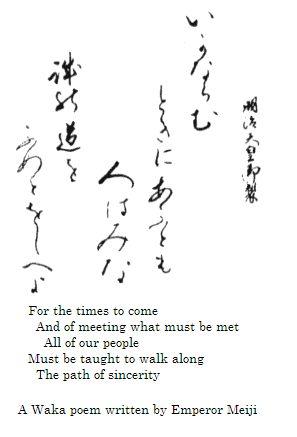 明治天皇御製
いかならむ
ときにあふとも
人はみな
誠の道を
ふめとをしへよ
For the times to come
And of meeting what must be met
All of our people
Must be taught to walk along
The path of sincerity
A Waka poem written by Emperor Meiji